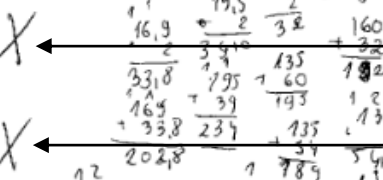 16,9
2
33,8
169
+ 33,8
202,8
19,5
+ 2
195
+ 39
234
2
32
135
+ 60
195
135
+ 54
189
160
+ 32
192
1 2
13
12
1